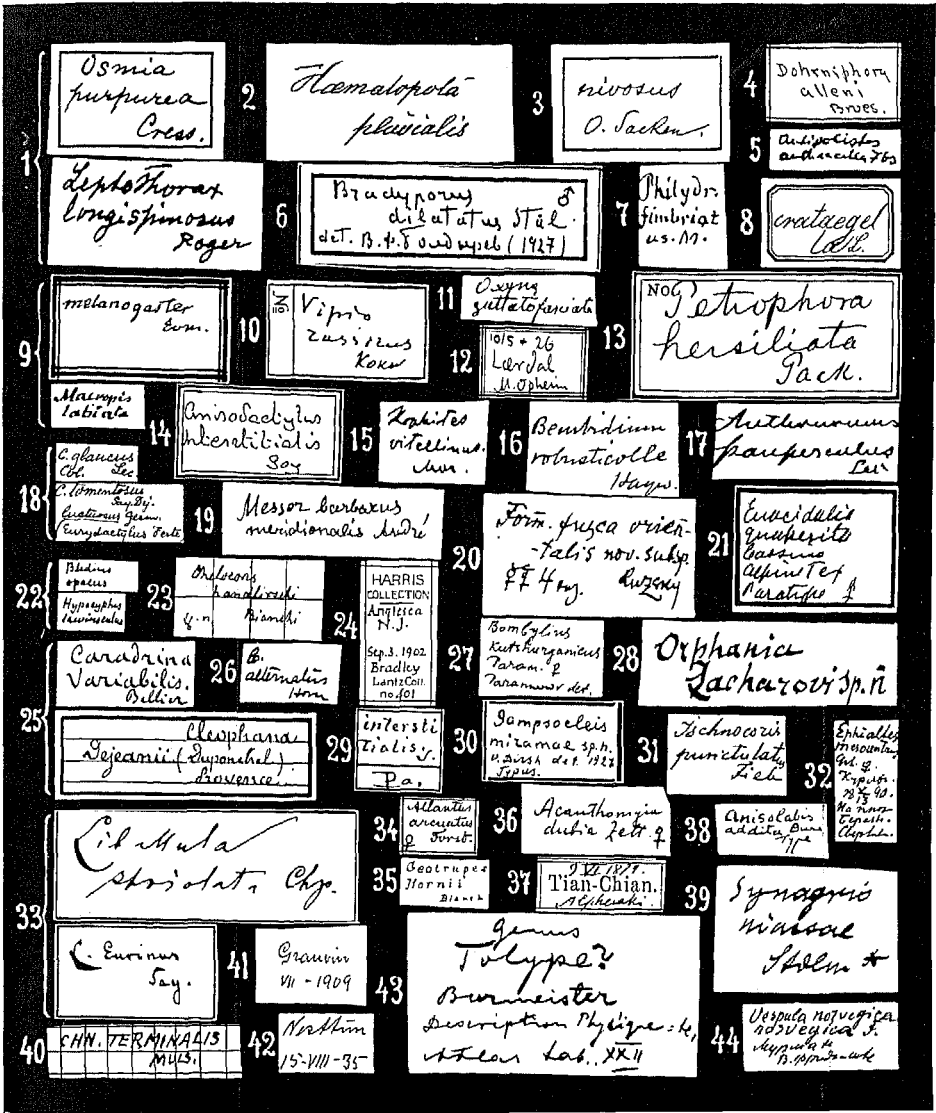 1
Osmia
purpurea
Cress.
Leptothorax
longispinosus
Roger
2
Hæmatopota
pluvialis
3
nivosus
O. Sacken.
4
Dohrniphora
alleni
Brues.
5
6
Bradyporus ♂
dilatatus Stål.
det. B. (1927)
7
Philydr.
fimbriat
us. M.
8
crataegel
9
melanogaster
Evm.
Macropis
labiata
10
No
Vipio
Kokw
11
Oxyna
guttatofasciata
12
10/5 + 26
Lærdal
M. Opheim
13
No
Petrophora
hersiliata
Pack.
14
Anisodactylus
interstitialis
Say
15
Rophites
vitellinus.
Mor.
16
Bembidium
robusticolle
Hayw.
17
Anthonomus
pauperculus
Lec
18
C. glaucus
Col. Lec
C. tomentosus
Say. Dj.
Germ.
Eurydactylus
19
Messor barbarus
meridionalis André
20
Form. fusca orien-
-talis nov. subsp.
☿☿ 4 ex. Ruzsky
21
Euacidalia
quakerita
Cassino
Alpin Tex
Paratype ♀
22
Bledius
opacus
Hypocyphus
23
g. n Bianchi
24
HARRIS
COLLECTION
Anglesea
N.J.
Sep. 3. 1902
Bradley
Lantz Coll.
no. 101
25
Caradrina
Variabilis.
Bellier
Cleophana
Dejeanii (Duponchel)
Provence
26
B.
alternatus
Horn
27
Bombylius
Kutshurganicus
Param. ♀
Paramonov det.
28
Orphania
Zacharovi sp. n
29
intersti
tialis
Pa.
30
Gampsocleis
miramae sp. n.
det. 1927
Typus.
31
Ischnocoris
punctulatus
Fieb
32
Ephialtes
33
Libellula
Chp.
L. Eurinus
Say.
34
Allantus
arcuatus
♀ Forst.
35
Geotrupes
Hornii
Blanch
36
Acanthomyia
dubia Zett. ♀
37
Tian-Chian.
Alpheraki.
38
Anisolabis
addita Burr
Type
39
Synagris
niassae
Stdlm *
40
CHN. TERMINALIS
MULS.
41
Grauvin
VII - 1909
42
15-VIII-35
43
genus
Tolype?
Burmeister
Description Physique
Atlas tab. XXII
44
Vespula norvegica
norvegica F.